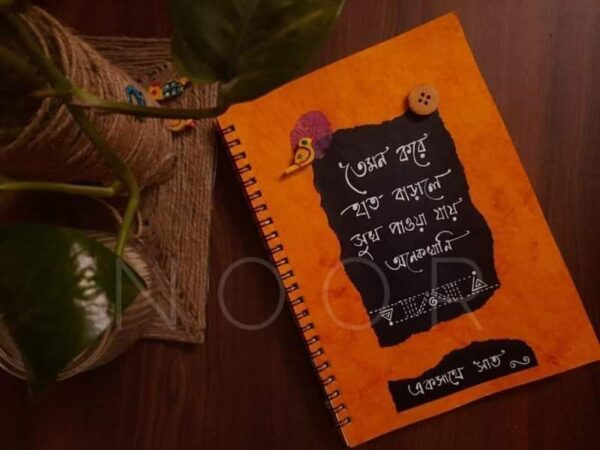 তেমন করে
হাত বাড়ালে
সুখ পাওয়া যায়
অনেকখানি
NOOR
একসাথে সাত